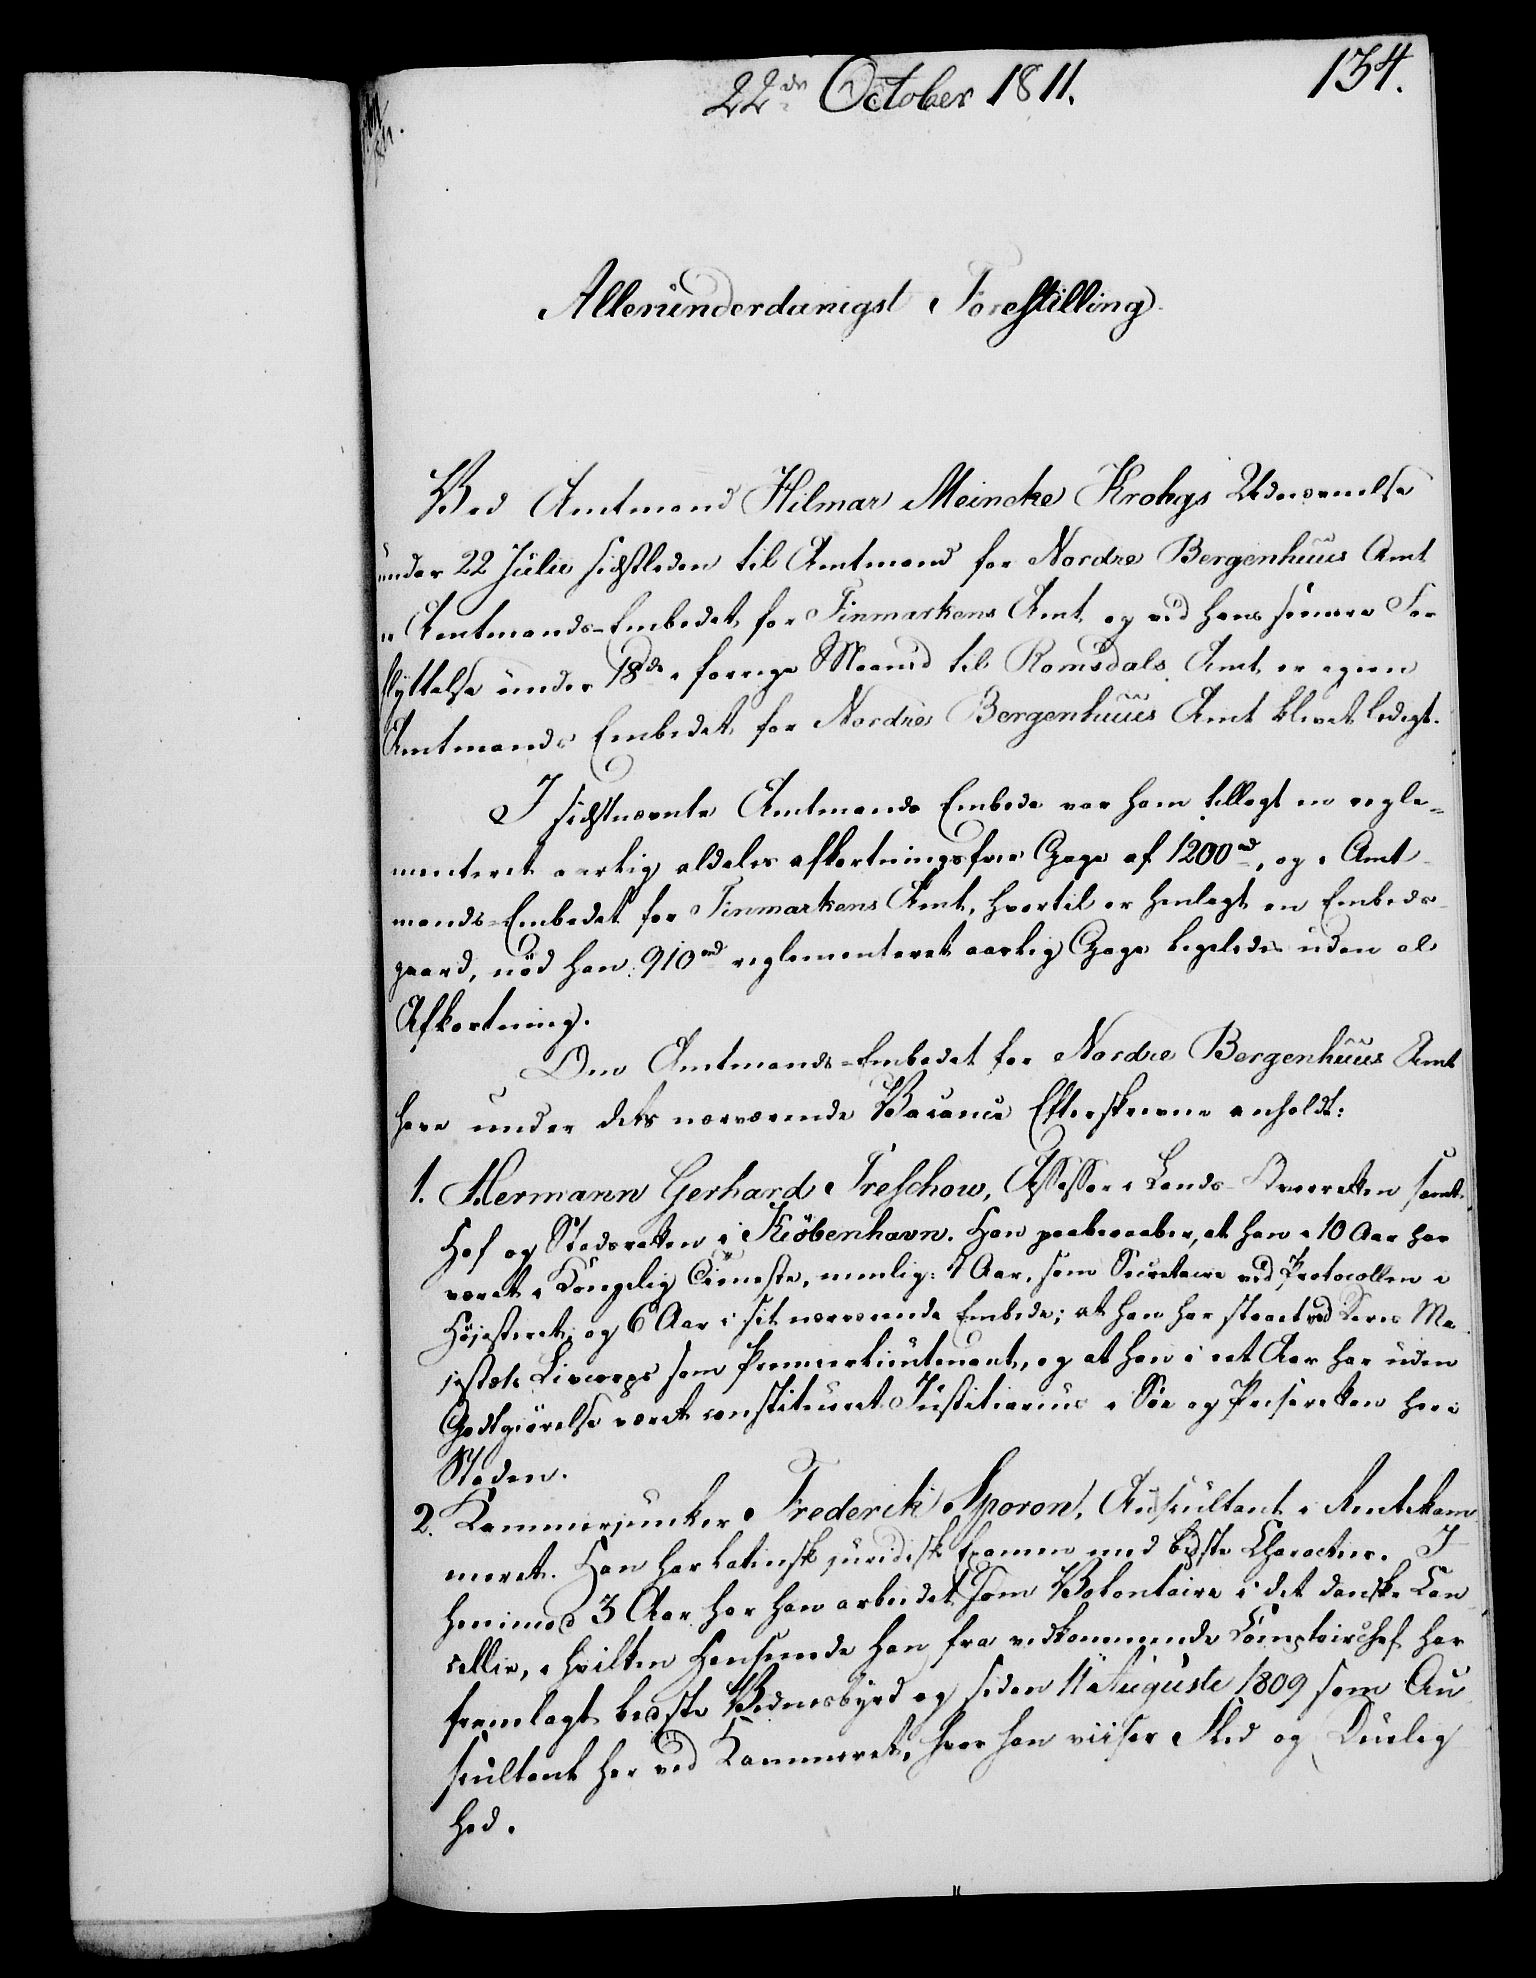 22de October 1811.
134.
Allerunderdanigst Forestilling.
Ved Amtmand Hilmar Meincke Krohgs Udnævnelse
under 22 Julii sidstleden til Amtmand for Nordre Bergenhuus Amt
er Amtmands-Embedet for Finmarkens Amt og ved hans senere For
flyttelse under 18de i forrige Maaned til Romsdals Amt er igien
Amtmands Embedet for Nordre Bergenhuus Amt blevet ledigt.
I sidstnævnte Amtmands Embede var ham tillagt en regle-
menteret aarlig aldeles afkortningsfrie Gage af 1200 rd, og i Amt-
mands-Embedet for Finmarkens Amt, hvortil er henlagt en Embeds-
gaard, nød han 910 rd reglementeret aarlig Gage ligeledes uden al
Afkortning.
Om Amtmands-Embedet for Nordre Bergenhuus Amt
have under dets nærværende Vacance Efterskrevne anholdt:
1. Hermann Gerhard Treschow, Assessor i Lands-Overretten samt
Hof og Stadsretten i Kiöbenhavn. Han paaberaaber, at han i 10 Aar har
været i Kongelig Tieneste, nemlig: 4 Aar, som Secretaire ved Protocollen i
Højesteret, og 6 Aar i sit nærværende Embede; at han har staaet ved Deres Ma
jestæts Livcorps som Premierlieutenant, og at han i eet Aar har uden
Godtgiørelse været constitueret Justitiarius i Søe og Priseretten her i
Staden.
2. Kammerjunker Frederik Sporon, Auscultant i Rentekam
meret. Han har latinsk juridisk Examen med bedste Character. I
henimod 3 Aar har han arbeidet som Volontaire i det danske Can
cellie, i hvilken Henseende han fra vedkommende Comptoirchef har
fremlagt bedste Vidnesbyrd og siden 11 Augusti 1809 som Au
scultant her ved Kammeret, hvor han viiser Flid og Duelig
hed.